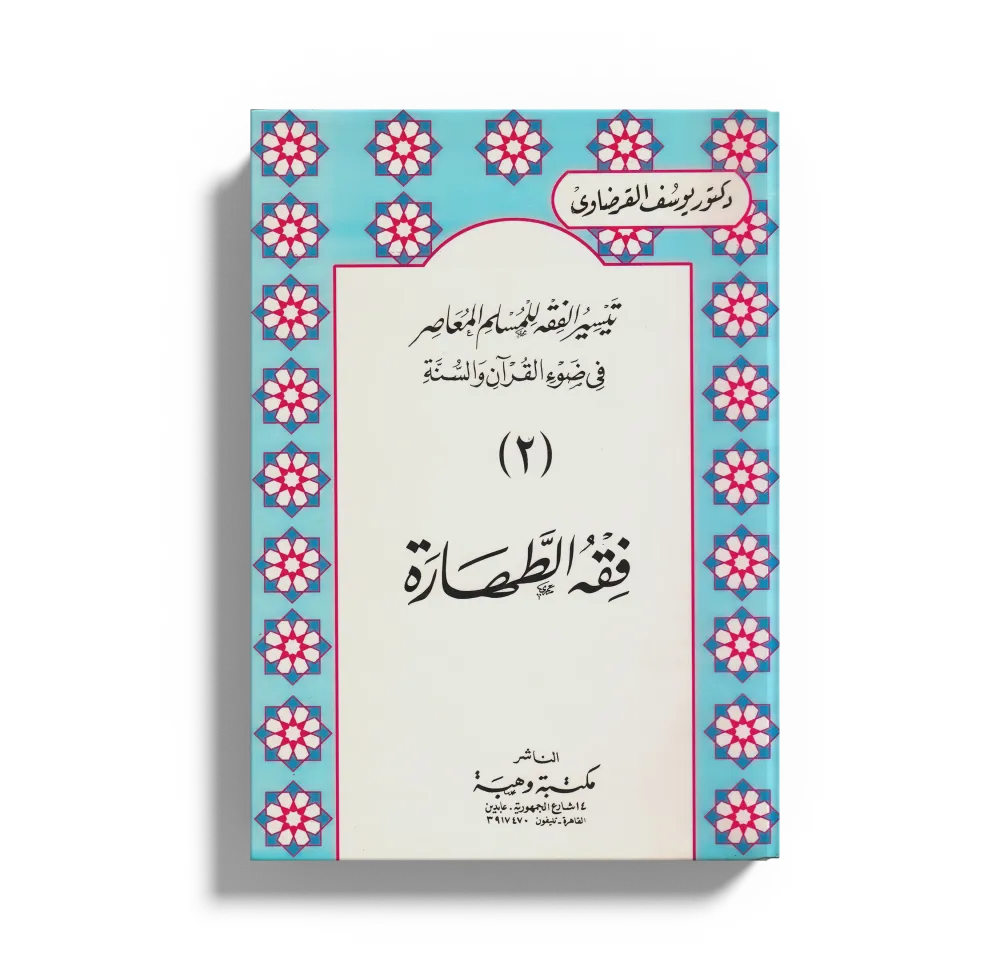 دكتور يوسف القرضاوى
تَيْسِيرُ الفِقْه لِلْمُسْلِمِ المُعَاصِر
فِي ضَوْءِ القُرْآنِ وَالسُّنَّةِ
(٢)
فِقْهُ الطَّهَارَة
الناشر
مكتبة وهبَة
١٤ شارع الجمهورية - عابدين
القاهرة - تليفون ٣٩١٧٤٧٠